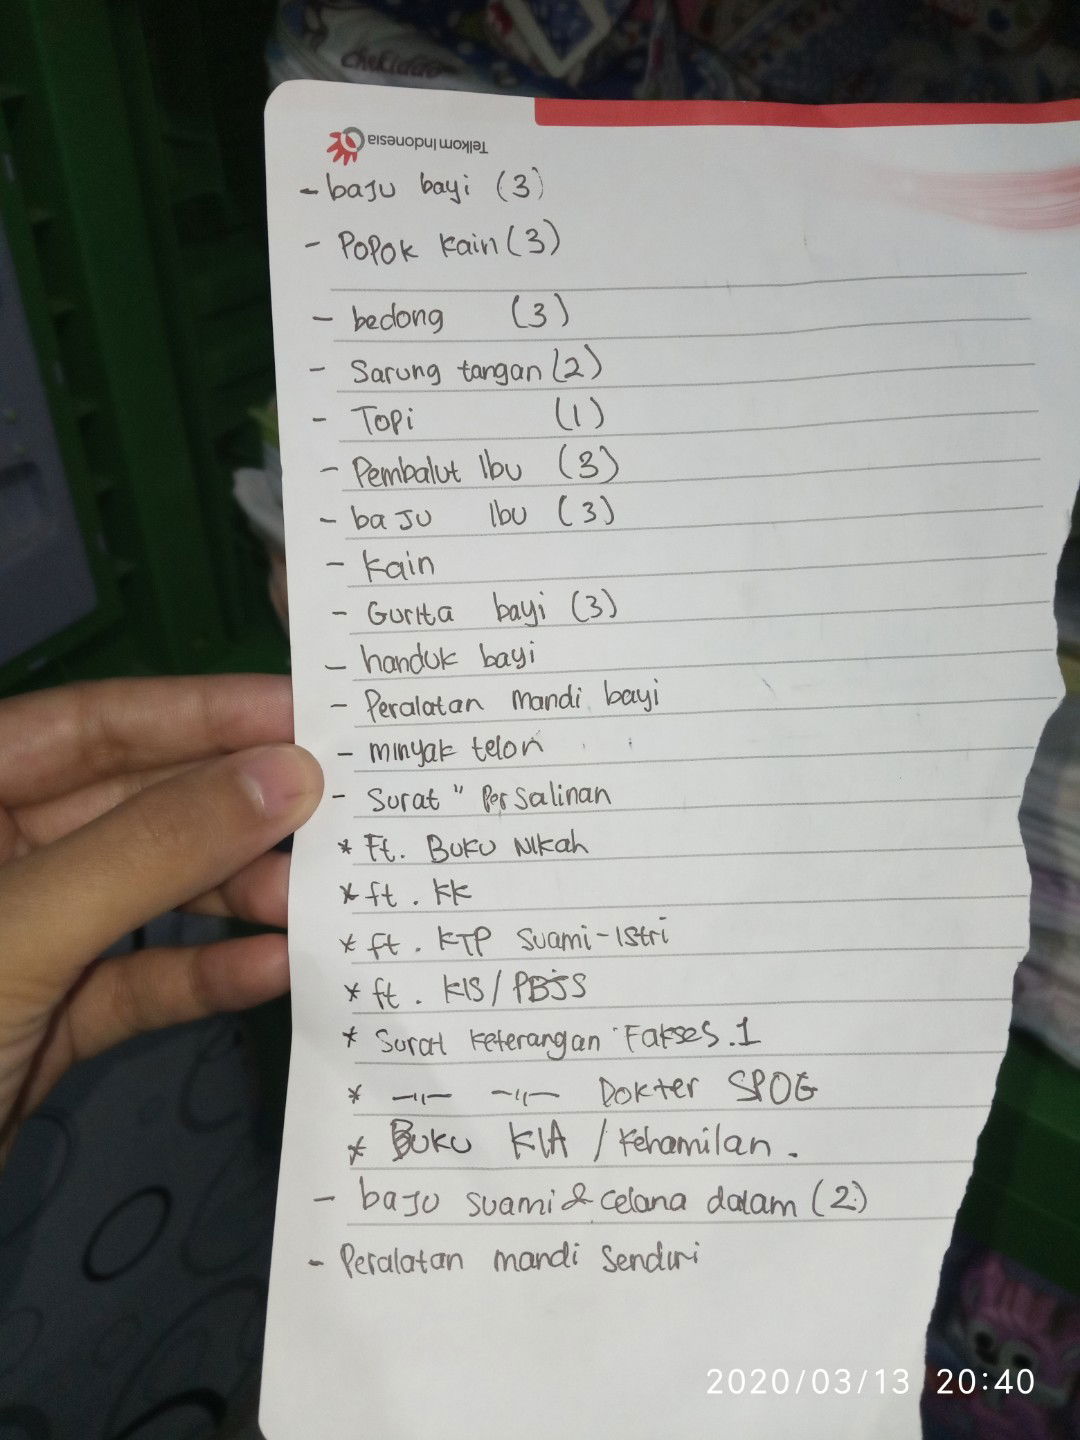 chekiddo
Telkom Indonesia
- baju bayi (3)
- Popok kain (3)
- bedong (3)
- Sarung tangan (2)
- Topi (1)
- Pembalut Ibu (3)
- baju Ibu (3)
- kain
- Gurita bayi (3)
- handuk bayi
- Peralatan mandi bayi
- minyak telon
- Surat " Persalinan
* Ft. Buku Nikah
* ft. KK
* ft. KTP Suami-Istri
* ft. KIS/PBJS
* Surat keterangan Fakses.1
* -"- -"- Dokter SPOG
* Buku KIA / Kehamilan.
- baju suami & celana dalam (2)
- Peralatan mandi Sendiri
2020/03/13 20:40